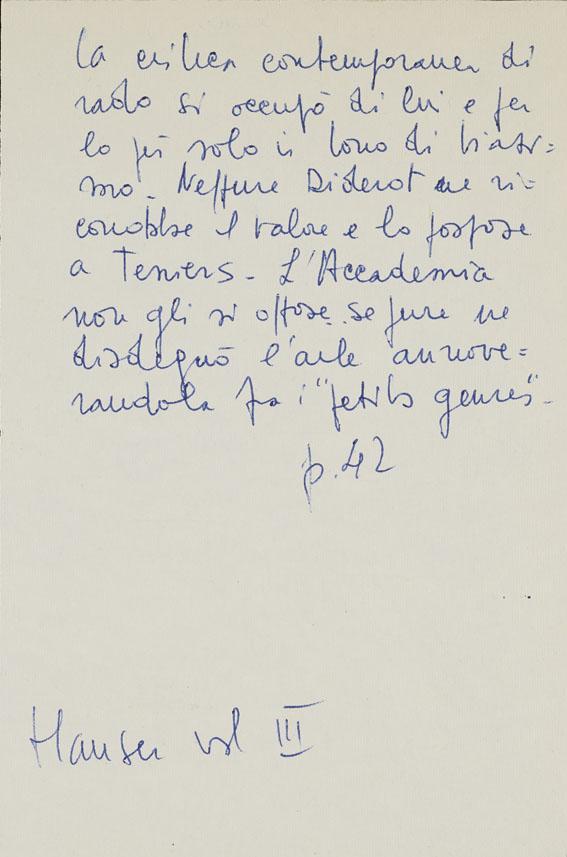 La critica contemporanea di
rado si occupò di lui e per
lo più solo in tono di biasi=
mo. Neppure Diderot ne ri=
conobbe il valore e lo pospose
a Teniers. L'Accademia
non gli si oppose se pure ne
disdegnò l'arte annove=
randola fra i "petits genres".
p. 42
Hauser vol III